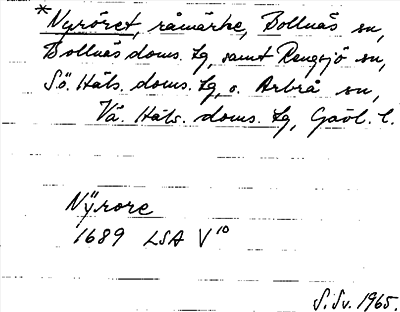 *Nyröret, råmärke, Bollnäs sn,
Bollnäs doms. lg, samt Rengsjö sn,
Sö. Häls. doms. lg, o. Arbrå sn,
Vä. Häls. doms. lg, Gävl. l.
Nÿrore
1689 LSA V¹⁰
S. Sv. 1965.